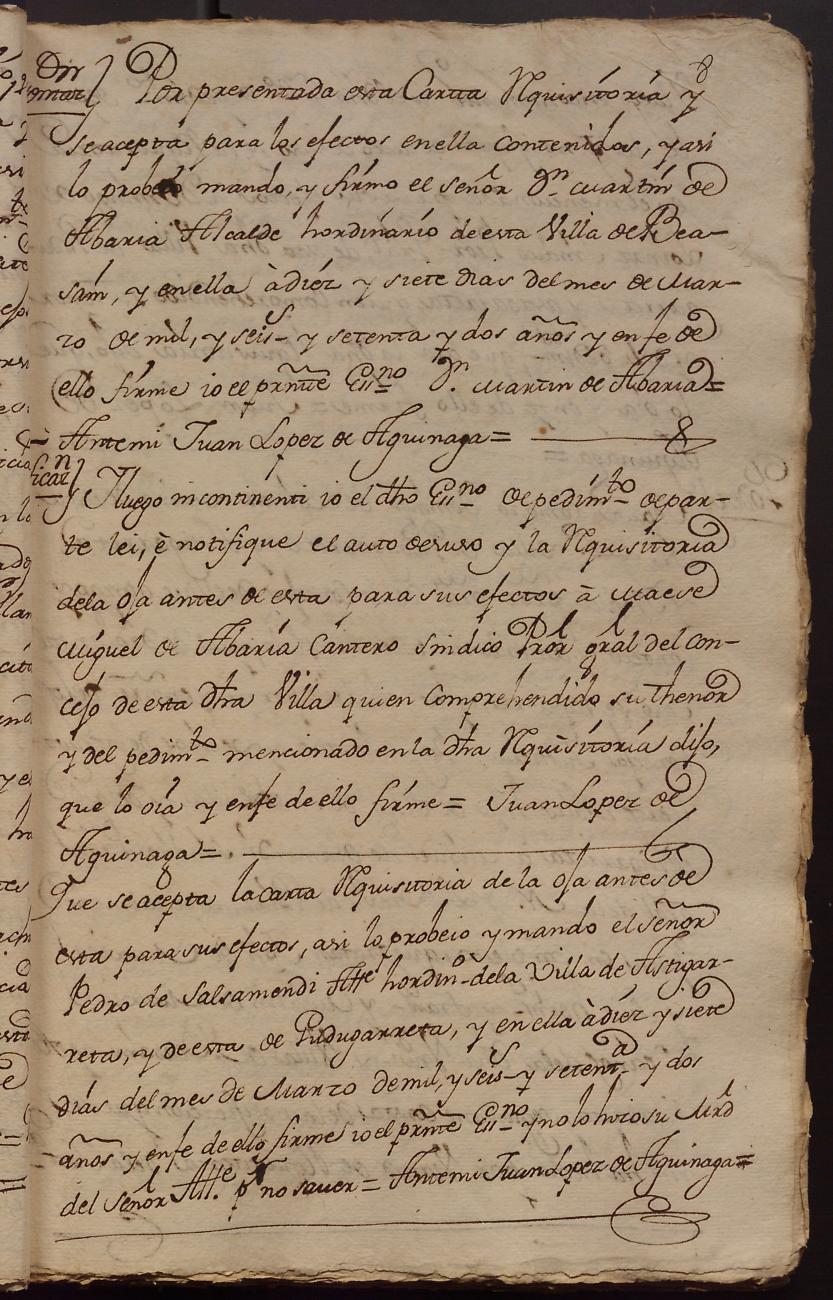 8
Por presentada esta Cartta Rquisitoria y
se acepta para los efectos en ella contenidos, y asi
lo probeio mando, y firmo el señor Dn. Martin de
Abaria Alcalde hordinario de esta Villa de Bea-
sain, y en ella à diez y siete dias del mes de Mar-
zo de mil, y seiss- y setenta y dos años y en fe de
ello firme io el prnte Essno Dn. Martin de Abaria=
Antemi Juan Lopez de Aguinaga=
Y luego incontinenti io el dho Essno de pedimto de par-
te lei, è notifique el auto de suso y la Rquisitoria
de la oja antes de esta para sus efectos à Maese
Miguel de Abaria Cantero sindico Pror gral del con-
cejo de esta dha Villa quien comprehendido su thenor
y del pedimto mencionado en la dha Rquisitoria dijo,
que lo oia y en fe de ello firme= Juan Lopez de
Aguinaga=.
Que se acepta la carta Rquisitoria de la oja antes de
esta para sus efectos, asi lo probeio y mando el señor
Pedro de Salsamendi Alle hordino dela Villa de Astigar-
reta, y de esta de Gudugarreta, y en ella à diez y siete
dias del mes de Marzo de mil, y seiss- y setenta y dos
años y en fe de ello firme io el prnte Essno y no lo hizo su Mrd
del Señor Alle. pr no saver= Antemi Juan Lopez de Aguinaga=